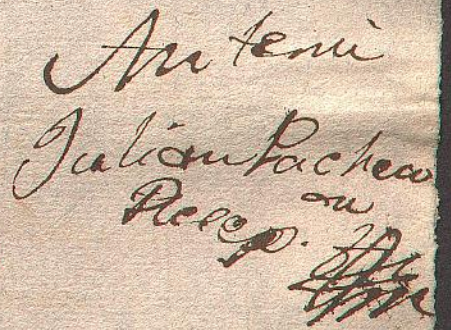 Ante mi
Julian Pacheco
Recep.